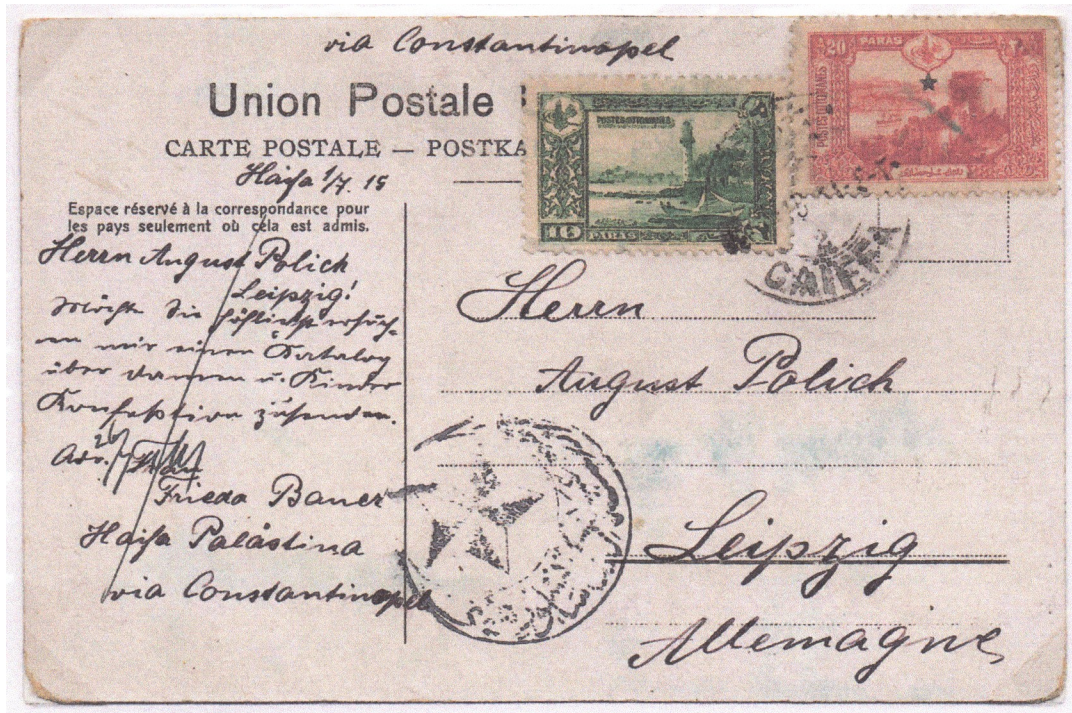 via Constantinopel
Union Postale
CARTE POSTALE — POSTKA
Haifa 1/7. 15
Espace réservé à la correspondance pour
les pays seulement où cela est admis.
Herrn August Polich
Leipzig!
Möchte Sie höflichst ersuch-
en mir einen Katalog
über Damen u. Kinder
Konfektion zusenden.
Adr. Frau
Frieda Bauer
Haifa Palästina
via Constantinopel
20 PARAS
POSTES OTTOMANES
POSTES OTTOMANES
10 PARAS
CAIFFA
Herrn
August Polich
Leipzig
Allemagne